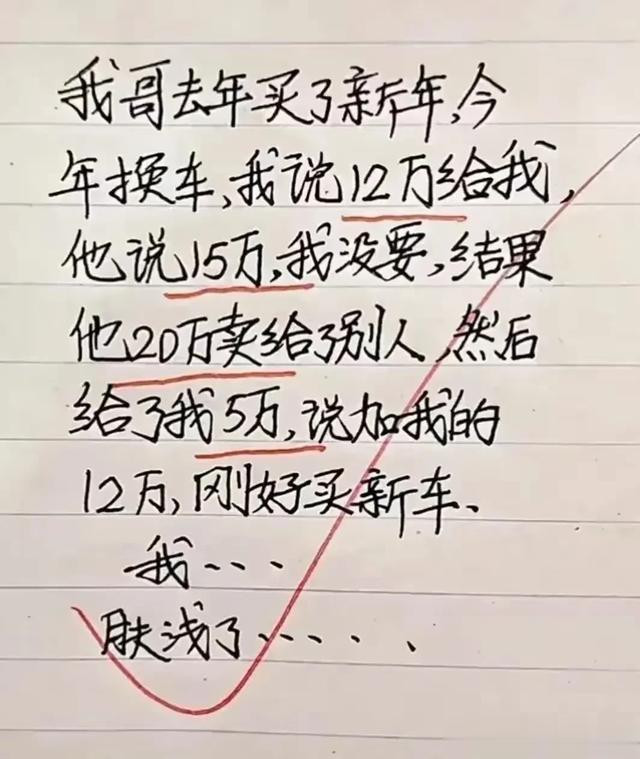 我哥去年买了新年,今
年换车,我说12万给我,
他说15万,我没要,结果
他20万卖给了别人,然后
给了我5万,说加我的
12万,刚好买新车、
我...
肤浅了.....、